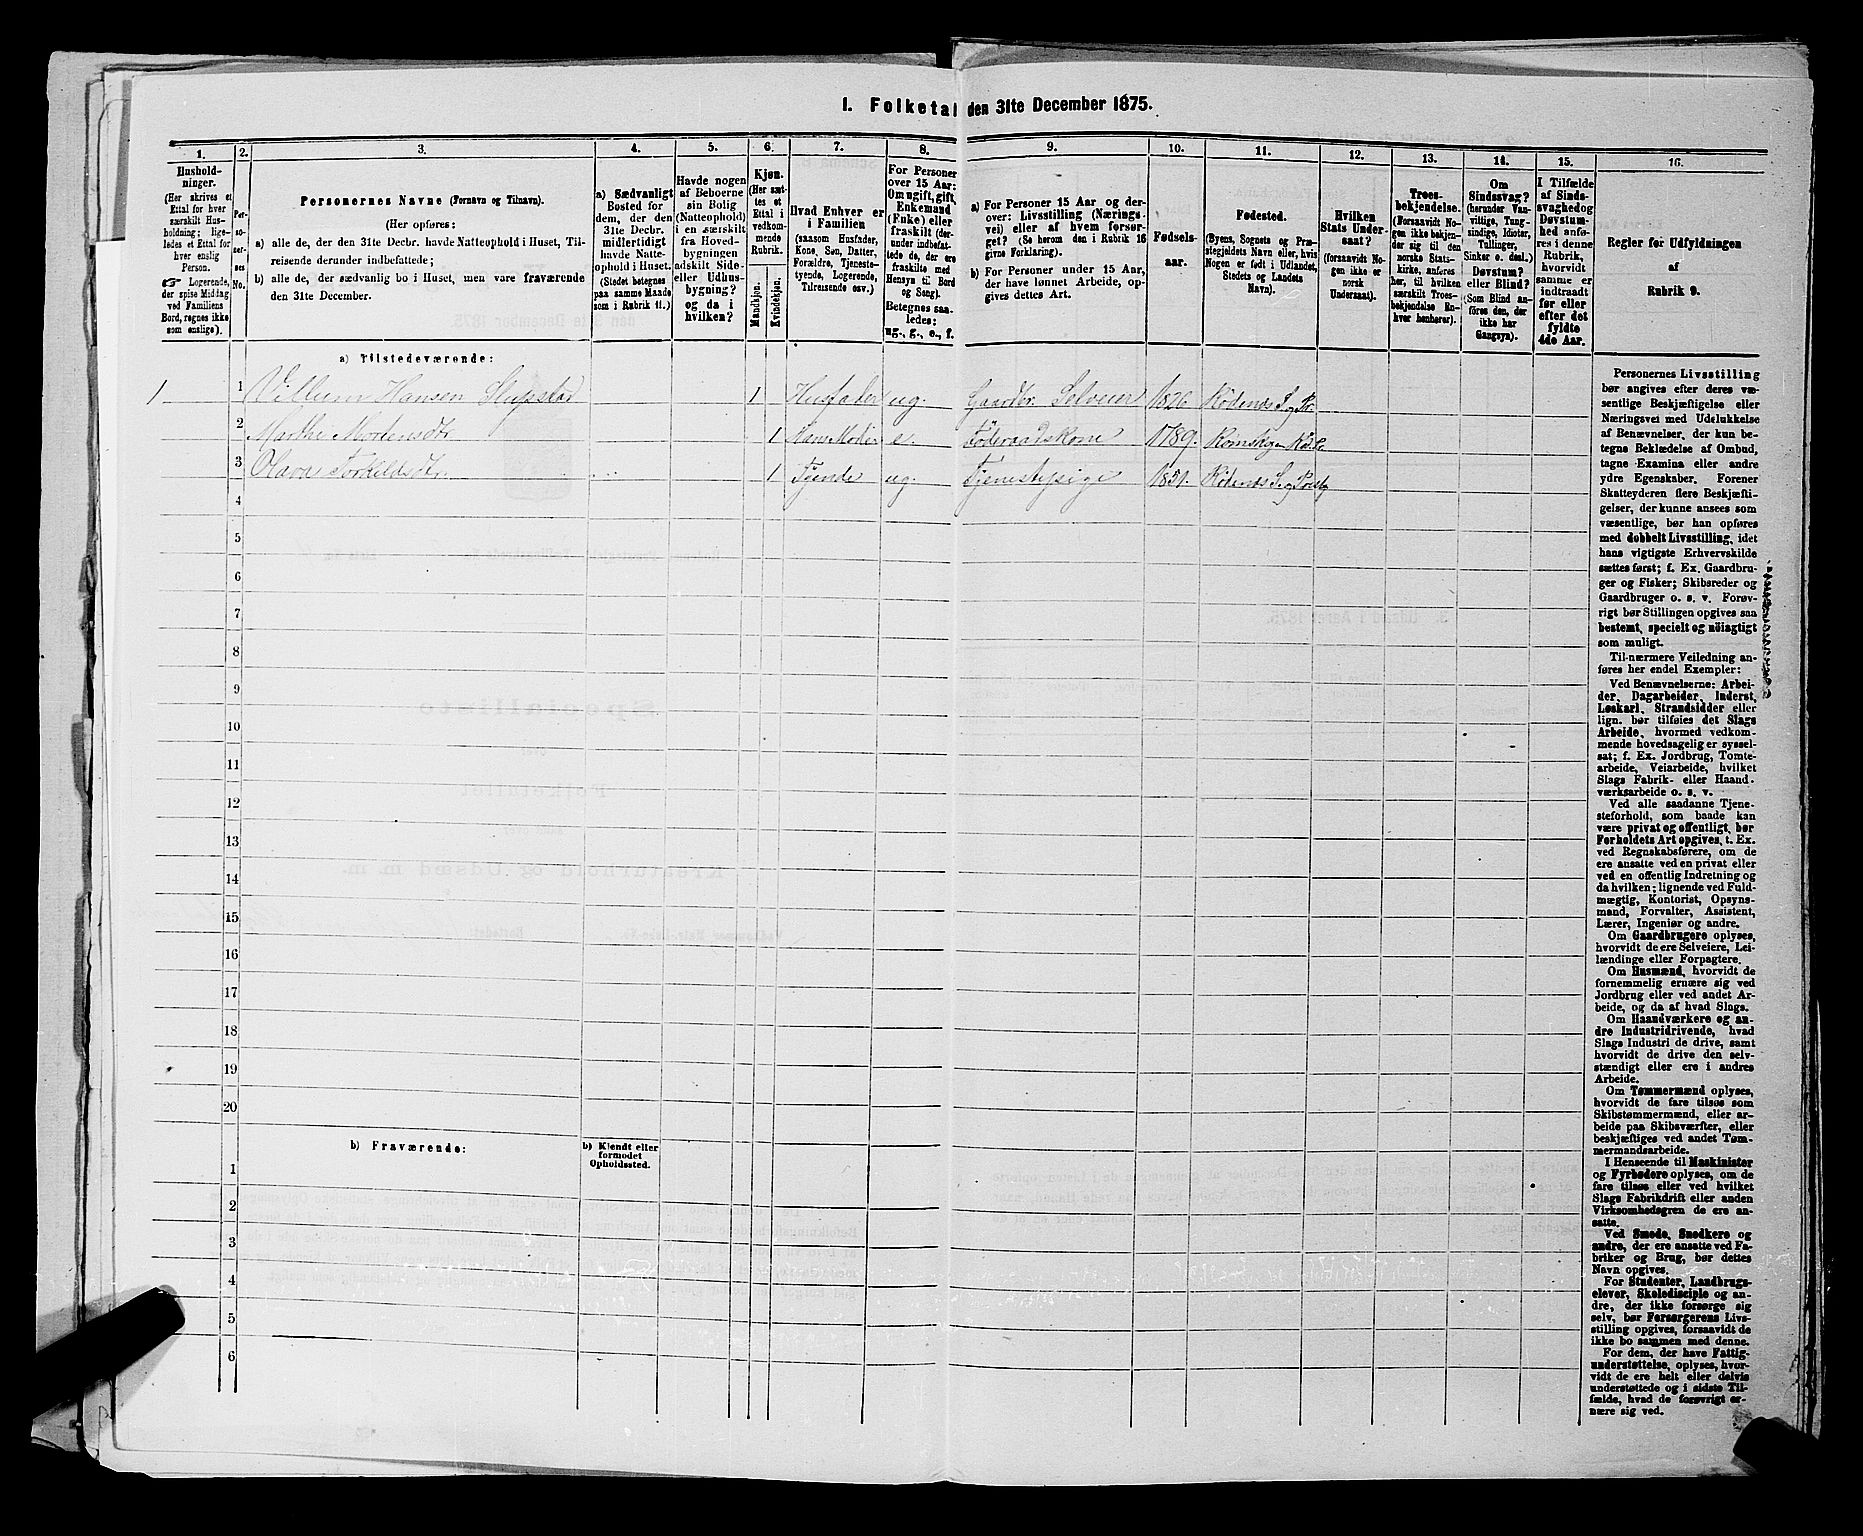 1. Folketal den 31te December 1875.
1.
Hushold-
ninger.
(Her skrives et
Ettal for hver
særskilt Hus-
holdning; lige-
ledes et Ettal for
hver enslig
Person.
Logerende,
der spise Middag
ved Familiens
Bord, regnes ikke
som enslige).
2.
Per-
so-
ner-
nes
No.
3.
Personernes Navne (Fornavn og Tilnavn).
(Her opføres:
a) alle de, der den 31te Decbr. havde Natteophold i Huset, Til-
reisende derunder indbefattede;
b) alle de, der sædvanlig bo i Huset, men vare fraværende
den 31te December.
4.
a) Sædvanligt
Bosted for
dem, der den
31te Decbr.
midlertidigt
havde Natte-
ophold i Huset.
(Stedet betegnes
paa samme Maade
som i Rubrik 11.)
5.
Havde nogen
af Beboerne
sin Bolig
(Natteophold)
i en særskilt
fra Hoved-
bygningen
adskilt Side-
eller Udhus-
bygning?
og da i
hvilken?
6.
Kjøn.
(Her sæt-
tes et
Ettal i
vedkom-
mende
Rubrik.
Mandkjøn.
Kvindekjøn.
7.
Hvad Enhver er
i Familien
(saasom Husfader,
Kone, Søn, Datter,
Forældre, Tjeneste-
tyende, Logerende,
Tilreisende osv.)
8.
For Personer
over 15 Aar:
Om ugift, gift,
Enkemand
(Enke) eller
fraskilt (der-
under indbefat-
tede de, der
ere fraskilte med
Hensyn til Bord
og Seng).
Betegnes saa-
ledes:
ug., g., e., f.
9.
a) For Personer 15 Aar og der-
over: Livsstilling (Nærings-
vei) eller af hvem forsør-
get? (Se herom den i Rubrik 16
givne Forklaring).
b) For Personer under 15 Aar,
der have lønnet Arbeide, op-
gives dettes Art.
10.
Fødsels-
aar.
11.
Fødested.
(Byens, Sognets og Præ-
stegjeldets Navn eller, hvis
Nogen er født i Udlandet,
Stedets og Landets
Navn).
12.
Hvilken
Stats Under-
saat?
(forsaavidt No-
gen ikke er
norsk
Undersaat).
13.
Troes-
bekjendelse.
(Forsaavidt No-
gen ikke bekjen-
der sig til den
norske Stats-
kirke, anføres
her, til hvilken
særskilt Troes-
bekjendelse En-
hver henhører).
14.
Om
Sindssvag?
(herunder Van-
vittige, Tung-
sindige, Idioter,
Tullinger,
Sinker o. desl.)
Døvstum?
eller Blind?
(Som Blind an-
føres den, der
ikke har
Gangsyn).
15.
I Tilfælde
af Sinds-
svaghed og
Døvstum-
hed anfø-
res i denne
Rubrik,
hvorvidt
samme er
indtraadt
før eller
efter det
fyldte
4de Aar.
16.
Regler for Udfyldningen
af
Rubrik 9.
a) Tilstedeværende:
1 1 Villum Hansen Slupstad 1 Husfader ug. Gaardbr. Selveier 1826 Rødenæs S. og Pr.
2 Marthe Mortensdtr. 1 Hans Moder e. Føderaadskone 1789. Romskogen
3 Olava Torkildsdtr. 1 Tyende ug. Tjenestepige 1851. Rødenæs S. og
4
5
6
7
8
9
10
11
12
13
14
15
16
17
18
19
20
b) Fraværende:
b) Kjendt eller
formodet
Opholdssted.
1
2
3
4
5
6
Personernes Livsstilling
bør angives efter deres væ-
sentlige Beskjæftigelse eller
Næringsvei med Udelukkelse
af Benævnelser, der kun be-
tegne Beklædelse af Ombud,
tagne Examina eller andre
ydre Egenskaber. Forener
Skatteyderen flere Beskjæfti-
gelser, der kunne ansees som
væsentlige, bør han opføres
med dobbelt Livsstilling, idet
hans vigtigste Erhvervskilde
sættes først; f. Ex. Gaardbru-
ger og Fisker; Skibsreder og
Gaardbruger o. s. v. Forøv-
rigt bør Stillingen opgives saa
bestemt, specielt og nøiagtigt
som muligt.
Til nærmere Veiledning an-
føres her endel Exempler:
Ved Benævnelserne: Arbei-
der, Dagarbeider, Inderst,
Løskarl, Strandsidder eller
lign. bør tilføies det Slags
Arbeide, hvormed vedkom-
mende hovedsagelig er syssel-
sat; f. Ex. Jordbrug, Tomte-
arbeide, Veiarbeide, hvilket
Slags Fabrik- eller Haand-
værksarbeide o. s. v.
Ved alle saadanne Tjene-
steforhold, som baade kan
være privat og offentligt, bør
Forholdets Art opgives, t. Ex.
ved Regnskabsførere, om de
ere ansatte ved en privat eller
ved en offentlig Indretning og
da hvilken; lignende ved Fuld-
mægtig, Kontorist, Opsyns-
mand, Forvalter, Assistent,
Lærer, Ingeniør og andre.
Om Gaardbrugere oplyses,
hvorvidt de ere Selveiere, Lei-
lændinge eller Forpagtere.
Om Husmænd, hvorvidt de
fornemmelig ernære sig ved
Jordbrug eller ved andet Ar-
beide, og da af hvad Slags.
Om Haandværkere og an-
dre Industridrivende, hvad
Slags Industri de drive, samt
hvorvidt de drive den selv-
stændigt eller ere i andres
Arbeide.
Om Tømmermænd oplyses,
hvorvidt de fare tilsøs som
Skibstømmermænd, eller ar-
beide paa Skibsværfter, eller
beskjæftiges ved andet Tøm-
mermandsarbeide.
I Henseende til Maskinister
og Fyrbødere oplyses, om de
fare tilsøs eller ved hvilket
Slags Fabrikdrift eller anden
Virksomhedsgren de ere an-
satte.
Ved Smede, Snedkere og
andre, der ere ansatte ved Fa-
briker og Brug, bør dettes
Navn opgives.
For Studenter, Landbrugs-
elever, Skoledisciple og an-
dre, der ikke forsørge sig
selv, bør Forsørgerens Livs-
stilling opgives, forsaavidt de
ikke bo sammen med denne.
For dem, der have Fattig-
understøttelse, oplyses, hvor-
vidt de ere helt eller delvis
understøttede og i sidste Til-
fælde, hvad de forøvrigt er-
nære sig ved.